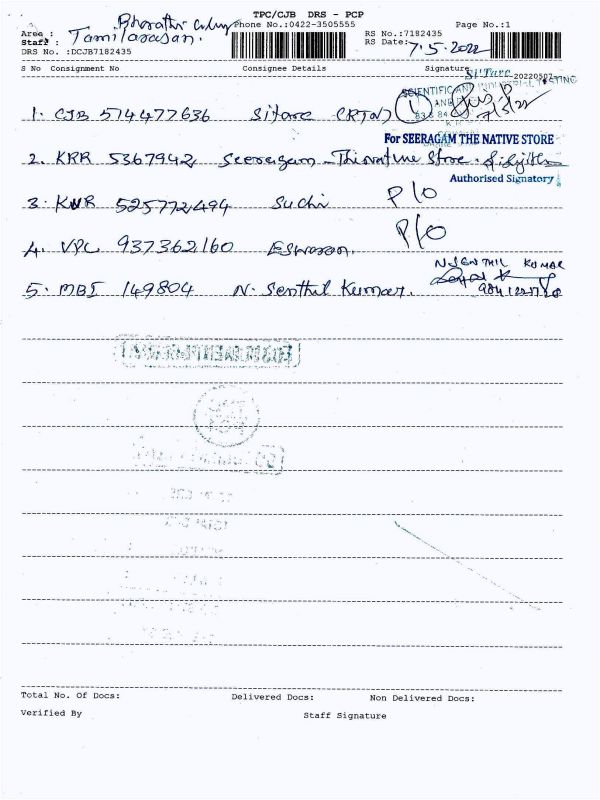 TPC/CJB DRS - PCP
Bharathi Colony Phone No.:0422-3505555 Page No.:1
Area : RS No.:7182435
Staff : Tamilarasan. RS Date: 7.5.2022
DRS No. :DCJB7182435
S No Consignment No Consignee Details Signature 20220507
Si'Tarc
SCIENTIFIC AND INDUSTRIAL TESTING
1. CJB 514477636 Sitarc (RTN) 1
For SEERAGAM THE NATIVE STORE
2. KRR 5367942 Seeragam - Store
Authorised Signatory
3. KNR 525772494 Suchi P/O
4. VPC 937362160 Eswaran. P/O
N. SENTHIL KUMAR
5. MBI 149804 N. Senthil Kumar.
Total No. Of Docs: Delivered Docs: Non Delivered Docs:
Verified By Staff Signature